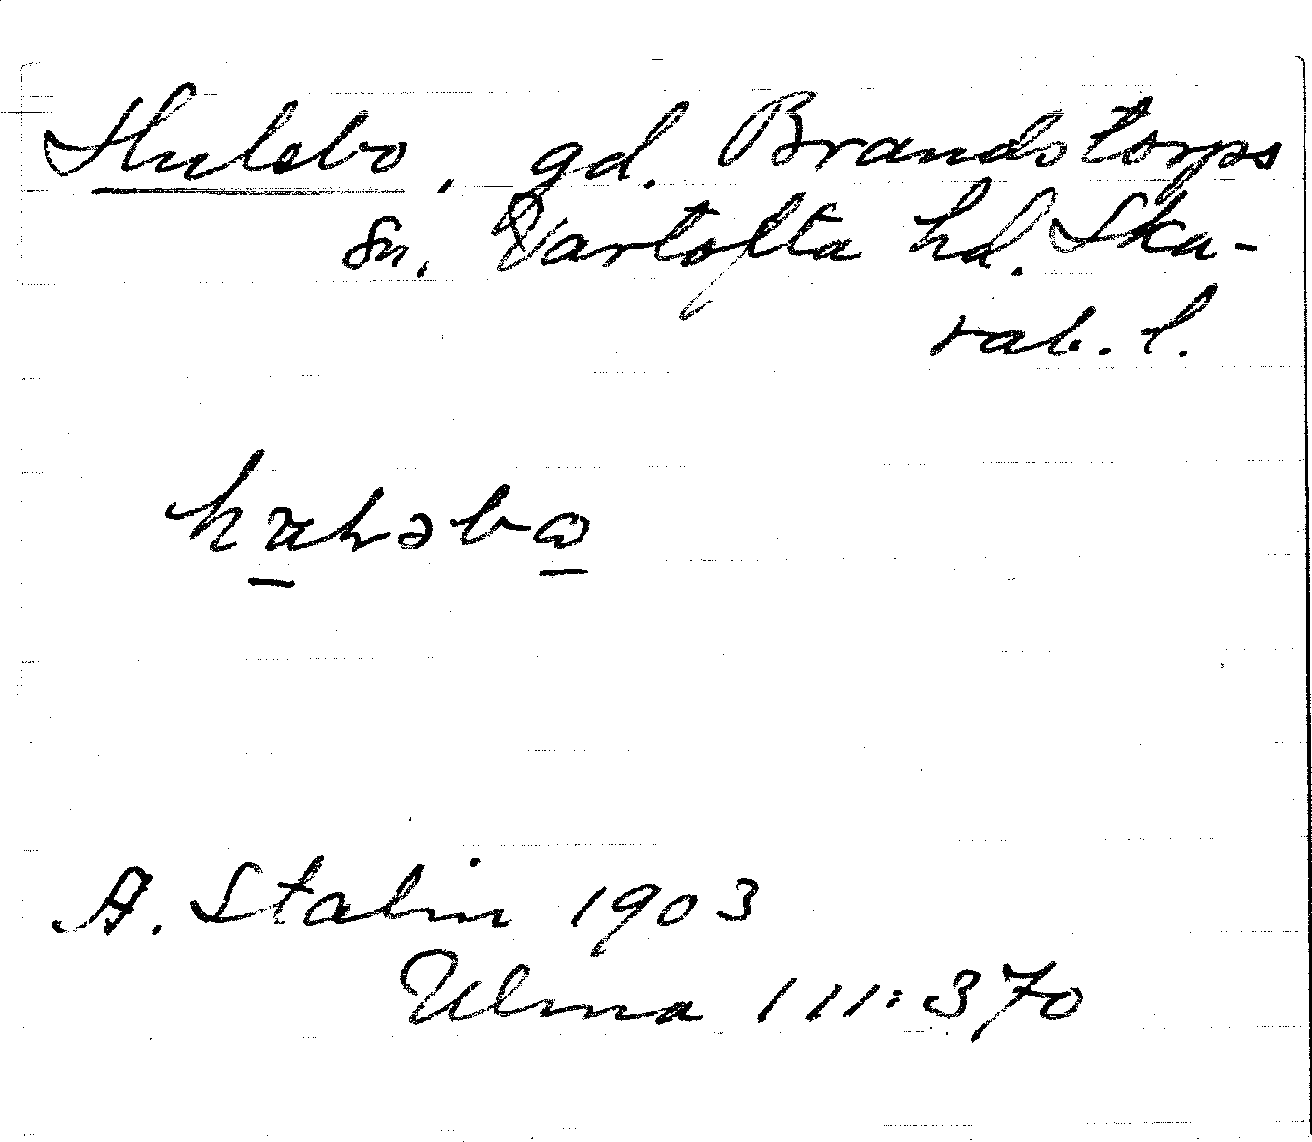 Hulebo, gd. Brandstorps
sn. Vartofta hd. Ska-
rab. l.
A. Stalin 1903
Ulma 111:370